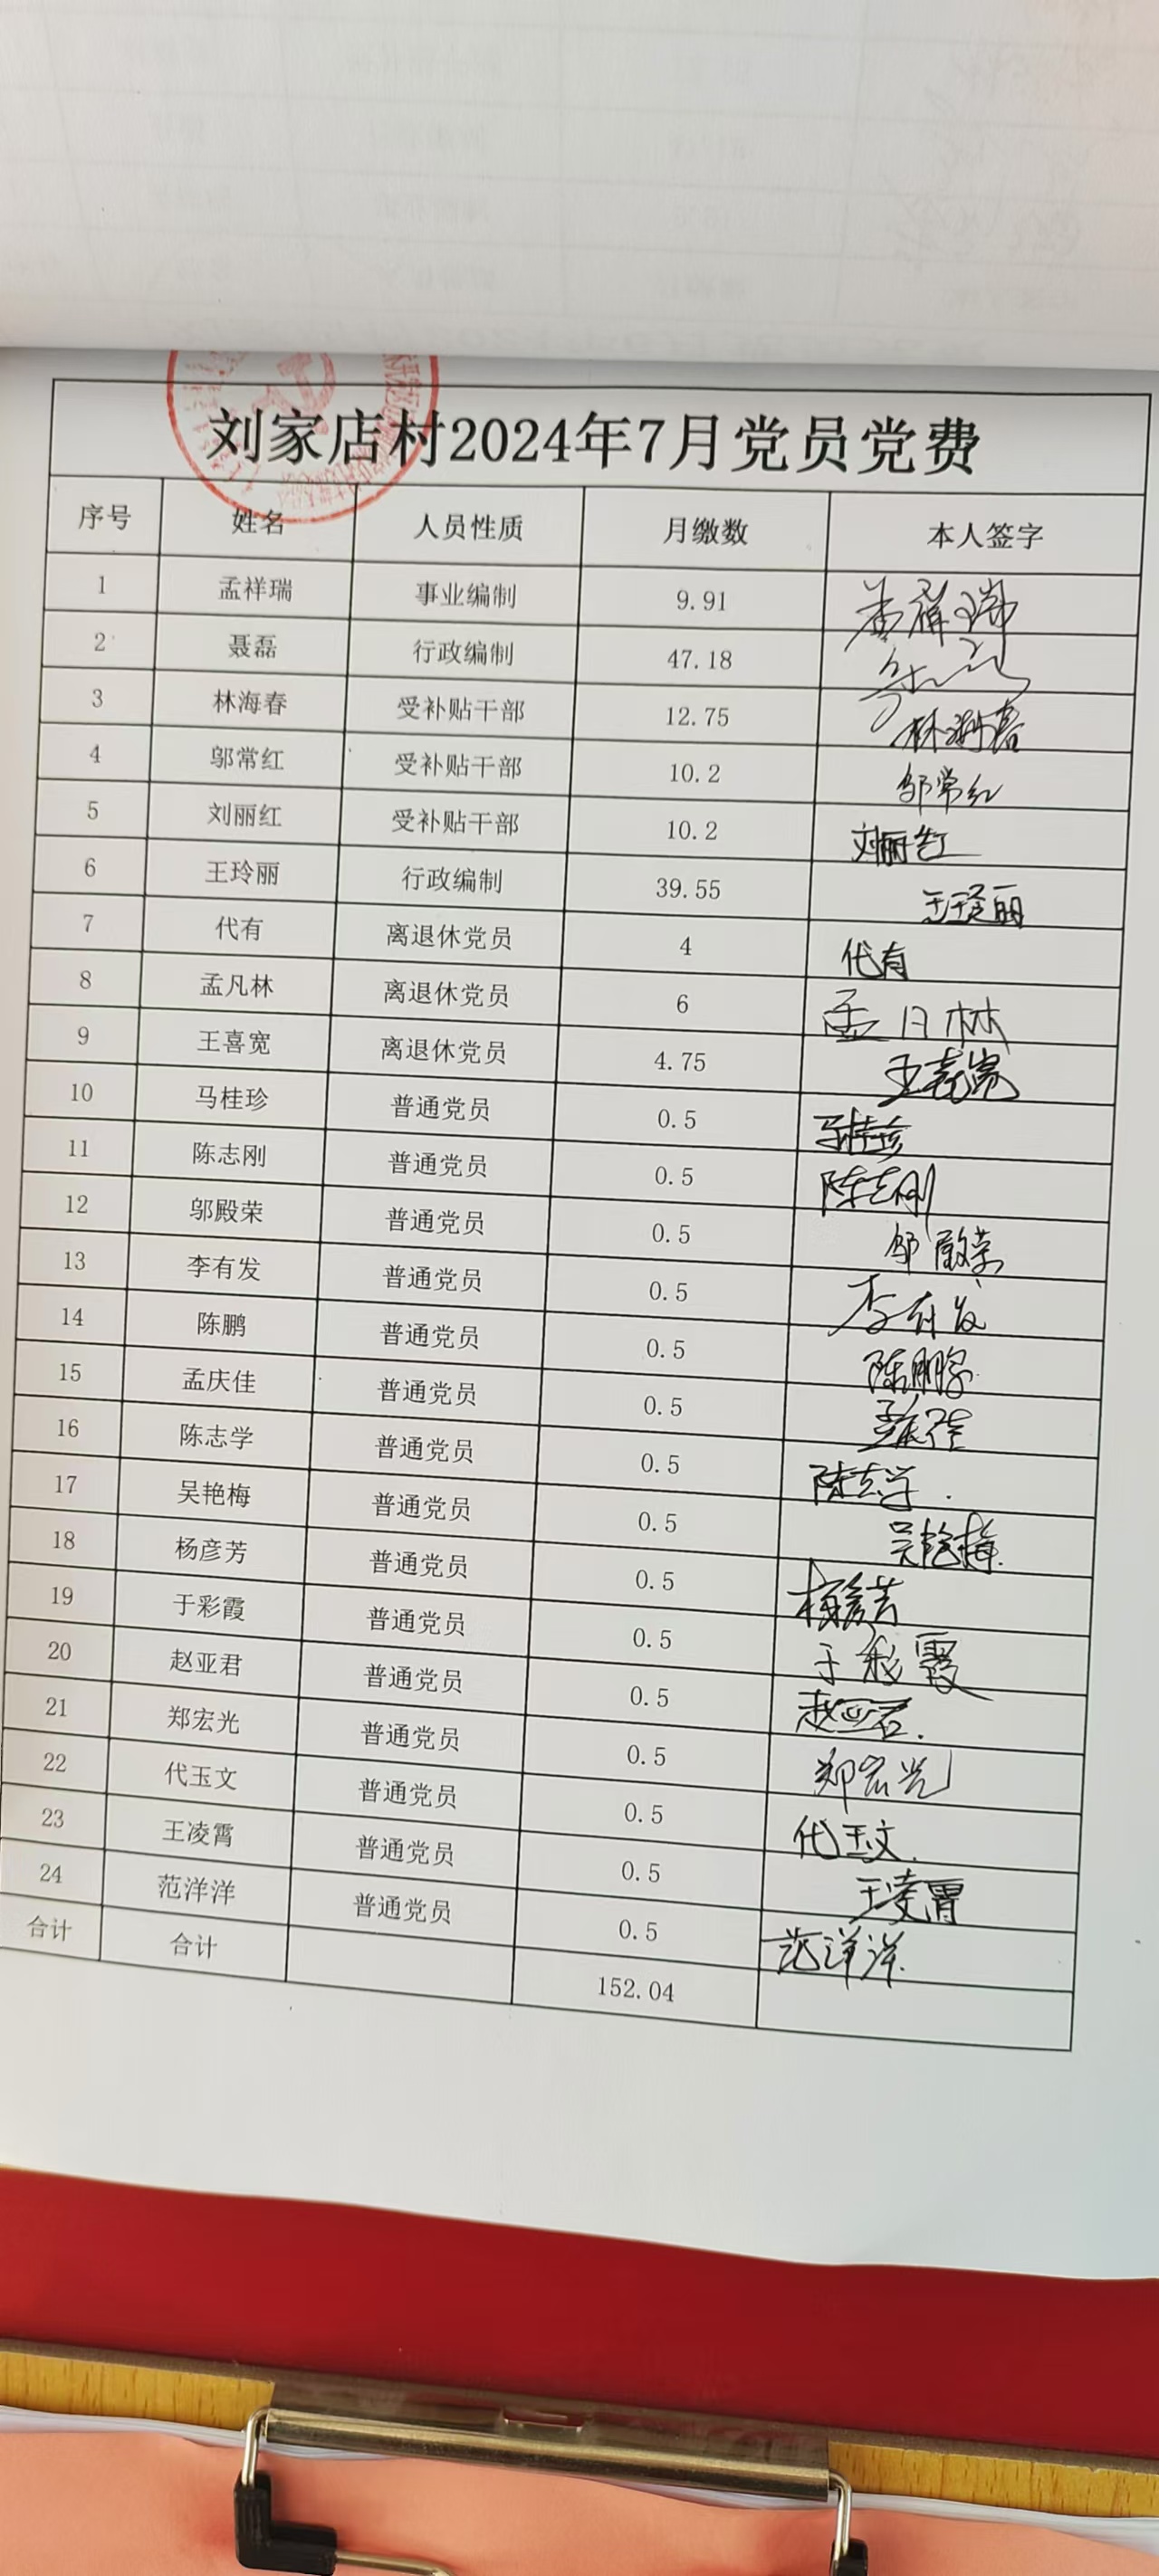 刘家店村2024年7月党员党费
序号 姓名 人员性质 月缴数 本人签字
1 孟祥瑞 事业编制 9.91 孟祥瑞
2 聂磊 行政编制 47.18
3 林海春 受补贴干部 12.75 林海春
4 邬常红 受补贴干部 10.2 邬常红
5 刘丽红 受补贴干部 10.2 刘丽红
6 王玲丽 行政编制 39.55 王玲丽
7 代有 离退休党员 4 代有
8 孟凡林 离退休党员 6 孟凡林
9 王喜宽 离退休党员 4.75 王喜宽
10 马桂珍 普通党员 0.5 马桂珍
11 陈志刚 普通党员 0.5 陈志刚
12 邬殿荣 普通党员 0.5 邬殿荣
13 李有发 普通党员 0.5 李有发
14 陈鹏 普通党员 0.5 陈鹏
15 孟庆佳 普通党员 0.5 孟庆佳
16 陈志学 普通党员 0.5 陈志学
17 吴艳梅 普通党员 0.5 吴艳梅
18 杨彦芳 普通党员 0.5 杨彦芳
19 于彩霞 普通党员 0.5 于彩霞
20 赵亚君 普通党员 0.5 赵亚君
21 郑宏光 普通党员 0.5 郑宏光
22 代玉文 普通党员 0.5 代玉文
23 王凌霄 普通党员 0.5 王凌霄
24 范洋洋 普通党员 0.5 范洋洋
合计 合计 152.04